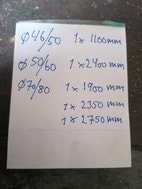 Ø46/50 1x1100mm
Ø50/60 1x2400mm
Ø70/80 1x1900mm
1x2350mm
1x2750mm